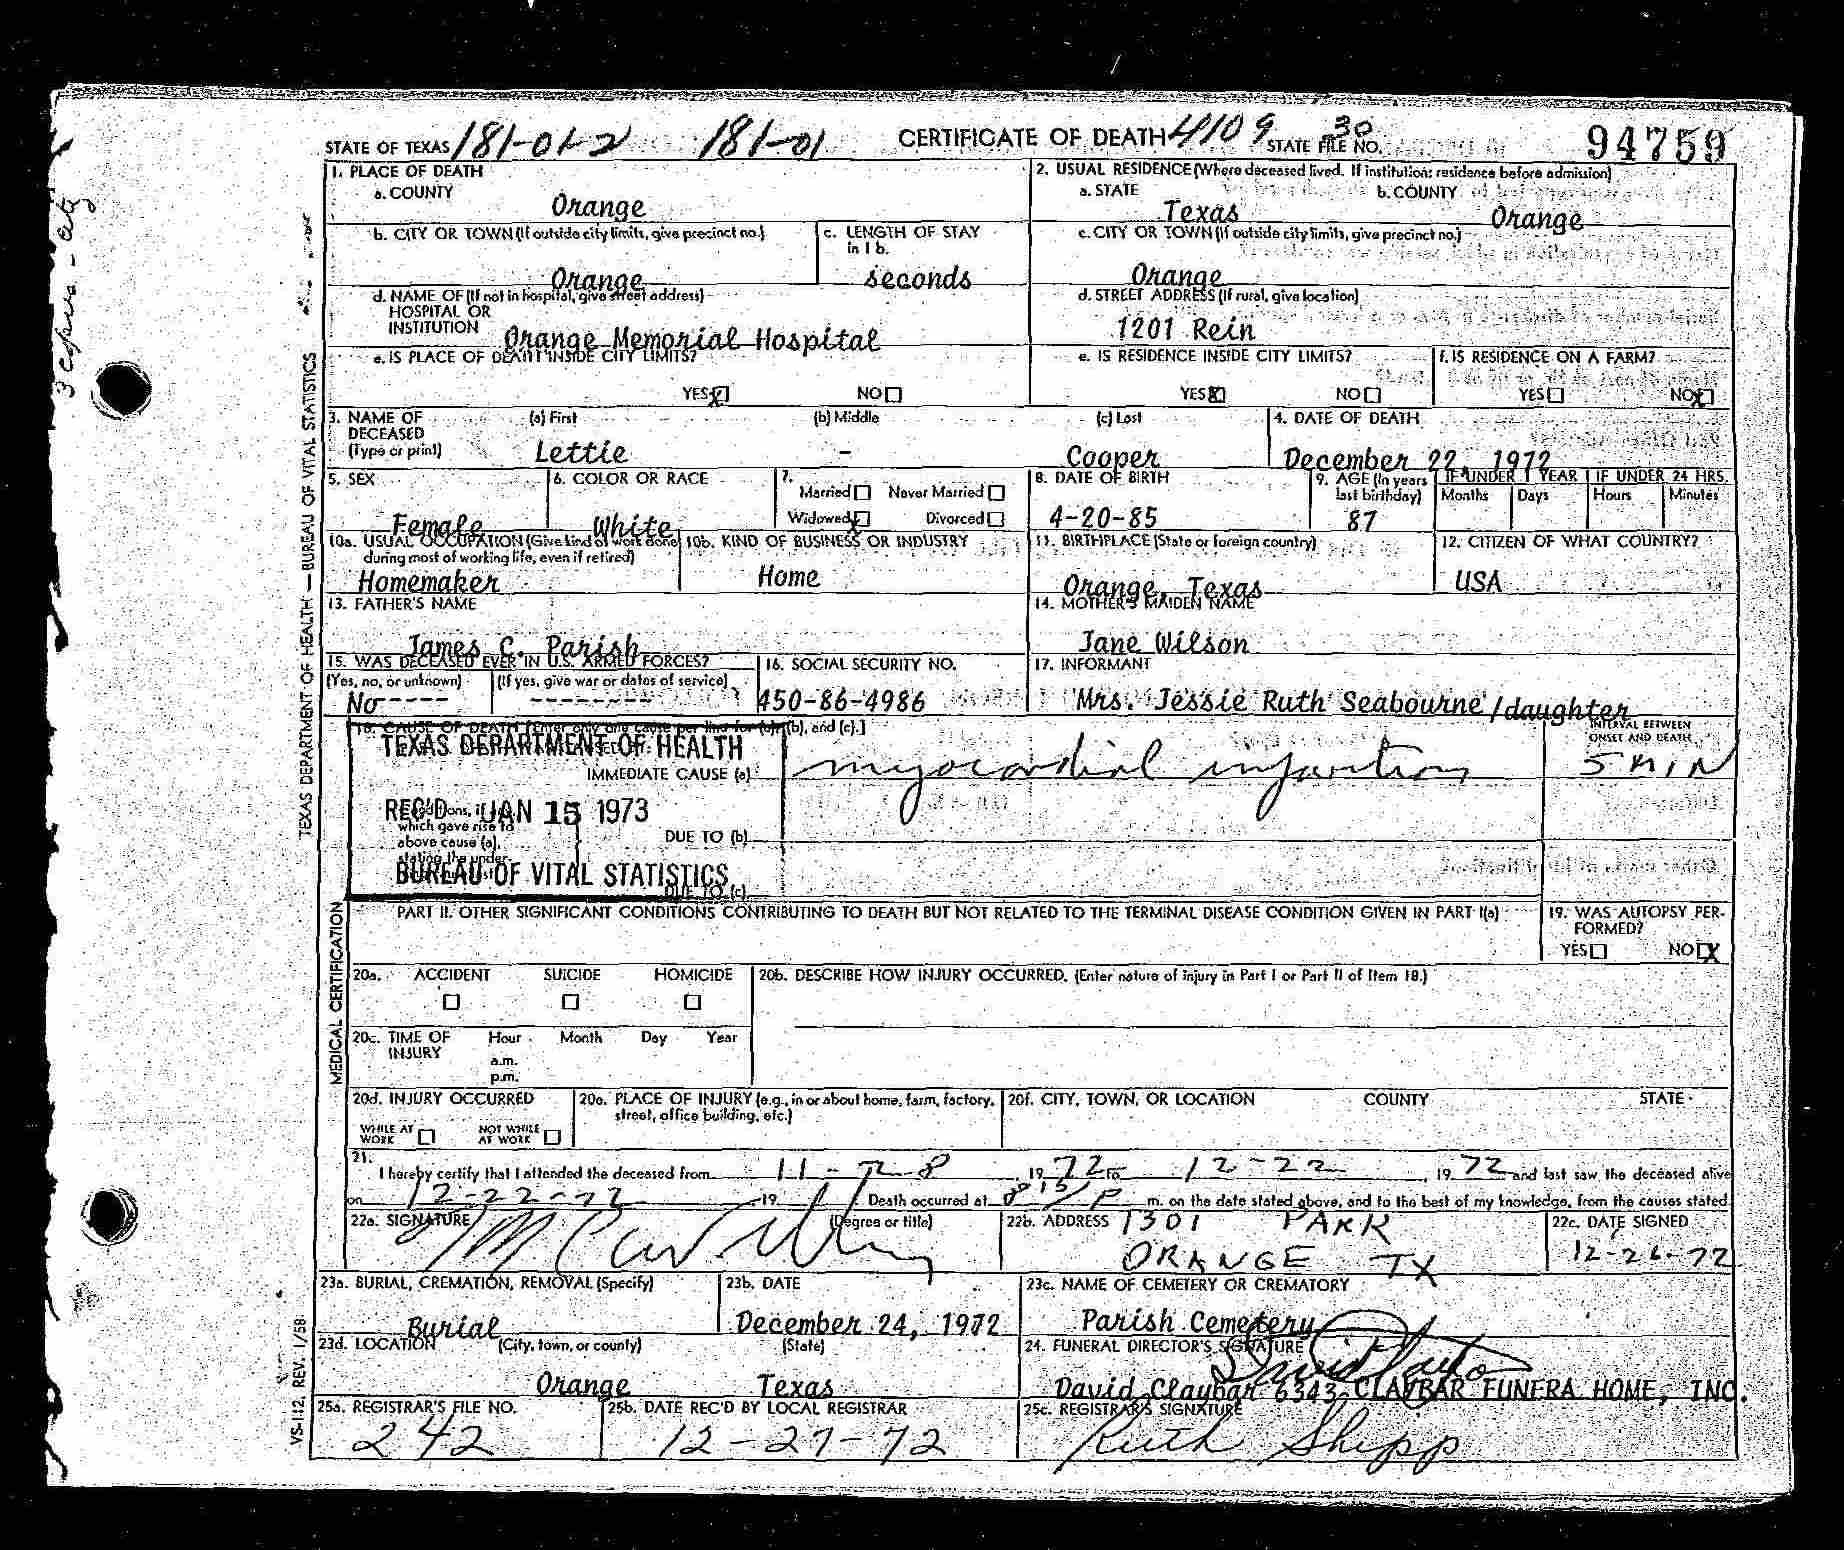 STATE OF TEXAS 181-01-2 181-01 CERTIFICATE OF DEATH 4109 STATE FILE NO. 30 94759
1. PLACE OF DEATH
a. COUNTY
Orange
2. USUAL RESIDENCE (Where deceased lived. If institution: residence before admission)
a. STATE b. COUNTY
Texas Orange
b. CITY OR TOWN (If outside city limits, give precinct no.)
Orange
c. LENGTH OF STAY
in 1 b.
seconds
c. CITY OR TOWN (If outside city limits, give precinct no.)
Orange
d. NAME OF (If not in hospital, give street address)
HOSPITAL OR
INSTITUTION
Orange Memorial Hospital
d. STREET ADDRESS (If rural, give location)
1201 Rein
e. IS PLACE OF DEATH INSIDE CITY LIMITS?
YES X NO
e. IS RESIDENCE INSIDE CITY LIMITS?
YES X NO
f. IS RESIDENCE ON A FARM?
YES NO X
3. NAME OF
DECEASED
(Type or print)
(a) First (b) Middle (c) Last
Lettie - Cooper
4. DATE OF DEATH
December 22, 1972
5. SEX
Female
6. COLOR OR RACE
White
7.
Married Never Married
Widowed X Divorced
8. DATE OF BIRTH
4-20-85
9. AGE (In years
last birthday)
87
IF UNDER 1 YEAR IF UNDER 24 HRS.
Months Days Hours Minutes
10a. USUAL OCCUPATION (Give kind of work done
during most of working life, even if retired)
Homemaker
10b. KIND OF BUSINESS OR INDUSTRY
Home
11. BIRTHPLACE (State or foreign country)
Orange, Texas
12. CITIZEN OF WHAT COUNTRY?
USA
13. FATHER'S NAME
James C. Parish
14. MOTHER'S MAIDEN NAME
Jane Wilson
15. WAS DECEASED EVER IN U.S. ARMED FORCES?
(Yes, no, or unknown) (If yes, give war or dates of service)
No----- --------
16. SOCIAL SECURITY NO.
450-86-4986
17. INFORMANT
Mrs. Jessie Ruth Seabourne/daughter
18. CAUSE OF DEATH [Enter only one cause per line for (a), (b), and (c).]
INTERVAL BETWEEN
ONSET AND DEATH
TEXAS DEPARTMENT OF HEALTH
IMMEDIATE CAUSE (a) myocardial infarction 5 MIN
REC'D JAN 15 1973
which gave rise to
above cause (a),
stating the under-
DUE TO (b)
BUREAU OF VITAL STATISTICS
DUE TO (c)
PART II. OTHER SIGNIFICANT CONDITIONS CONTRIBUTING TO DEATH BUT NOT RELATED TO THE TERMINAL DISEASE CONDITION GIVEN IN PART I(a)
19. WAS AUTOPSY PER-
FORMED?
YES NO X
20a. ACCIDENT SUICIDE HOMICIDE
20b. DESCRIBE HOW INJURY OCCURRED. (Enter nature of injury in Part I or Part II of Item 18.)
20c. TIME OF
INJURY
Hour Month Day Year
a.m.
p.m.
20d. INJURY OCCURRED
WHILE AT
WORK
NOT WHILE
AT WORK
20e. PLACE OF INJURY (e.g., in or about home, farm, factory,
street, office building, etc.)
20f. CITY, TOWN, OR LOCATION COUNTY STATE
21.
I hereby certify that I attended the deceased from 11-28, 19 72 to 12-22, 19 72 and last saw the deceased alive
on 12-22-72 19 Death occurred at 8:15 P m. on the date stated above, and to the best of my knowledge, from the causes stated.
22a. SIGNATURE (Degree or title)
22b. ADDRESS 1301 PARK
ORANGE TX
22c. DATE SIGNED
12-26-72
23a. BURIAL, CREMATION, REMOVAL (Specify)
Burial
23b. DATE
December 24, 1972
23c. NAME OF CEMETERY OR CREMATORY
Parish Cemetery
23d. LOCATION (City, town, or county) (State)
Orange Texas
24. FUNERAL DIRECTOR'S SIGNATURE
David Claybar 6343 CLAYBAR FUNERA HOME, INC.
25a. REGISTRAR'S FILE NO.
242
25b. DATE REC'D BY LOCAL REGISTRAR
12-27-72
25c. REGISTRAR'S SIGNATURE
Ruth Shipp
TEXAS DEPARTMENT OF HEALTH — BUREAU OF VITAL STATISTICS
MEDICAL CERTIFICATION
VS-112, REV. 1/58